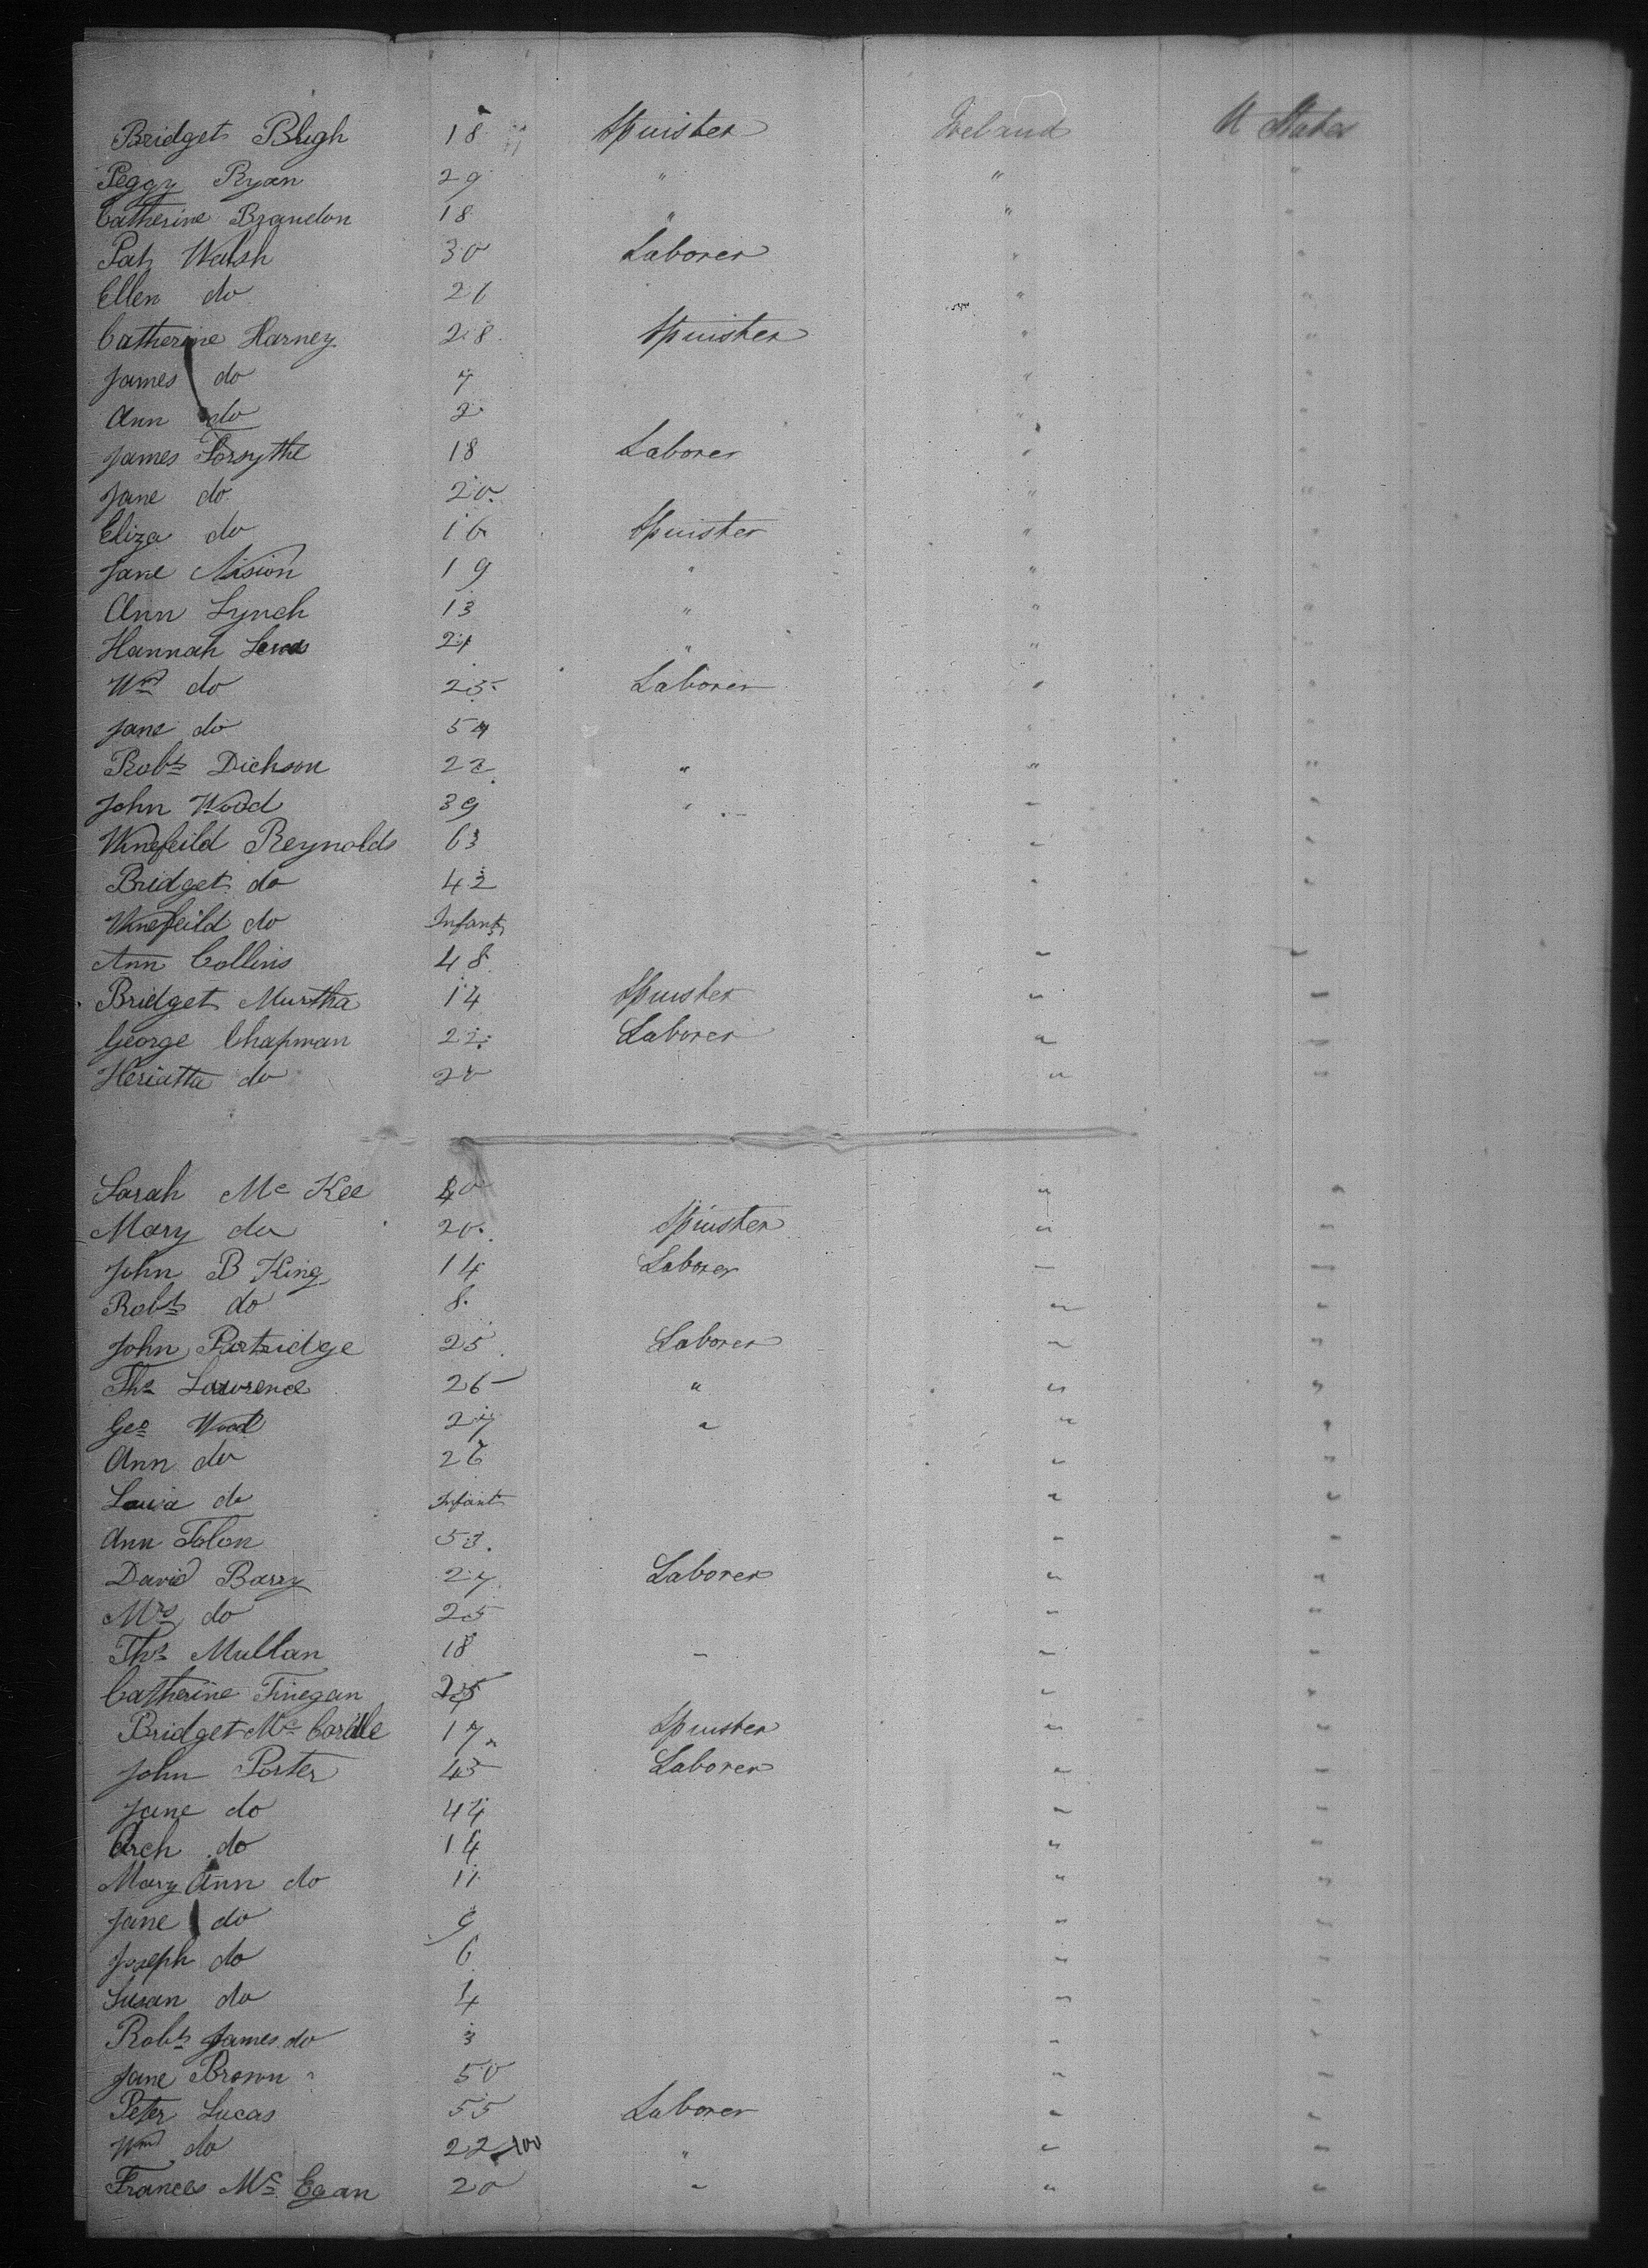 Bridget Bligh 18 Spinster Ireland U States
Peggy Ryan 29 " " "
Catherine Brandon 18 " " "
Pat Walsh 30 Laborer " "
Ellen do 26 " "
Catherine Harney 28 Spinster " "
James do 7 " "
Ann do 2 " "
James Forsythe 18 Laborer " "
Jane do 20 " "
Eliza do 16 Spinster " "
Jane 19 " " "
Ann Lynch 13 " " "
Hannah 21 " " "
Wm do 23 Laborer " "
Jane do 54 " "
Robt Dickson 22 " " "
John Wood 39 " " "
Winefeild Reynolds 63 " "
Bridget do 42 " "
Winefeild do Infant
Ann Collins 48 " "
Bridget Murtha 14 Spinster " "
George Chapman 22 Laborer " "
Heriatta do 20 " "
Sarah Mc Kee 40 " "
Mary do 20 Spinster " "
John B King 14 Laborer " "
Robt do 8 " "
John Partridge 25 Laborer " "
Thos Lawrence 26 " " "
Geo Wood 27 " " "
Ann do 26 " "
do Infant " "
Ann 53 " "
David Barry 27 Laborer " "
Mrs do 25 " "
Thos Mullan 18 " " "
Catherine Finegan 25 " "
Bridget Mc Cardle 17 Spinster " "
John Porter 45 Laborer " "
Jane do 44 " "
Arch do 14 " "
Mary Ann do 11 " "
Jane do 9 " "
Joseph do 6 " "
Susan do 4 " "
Robt James do 3 " "
Jane Brown 50 " "
Peter Lucas 55 Laborer " "
Wm do 22 100 " " "
Frances Mc Egan 20 " " "